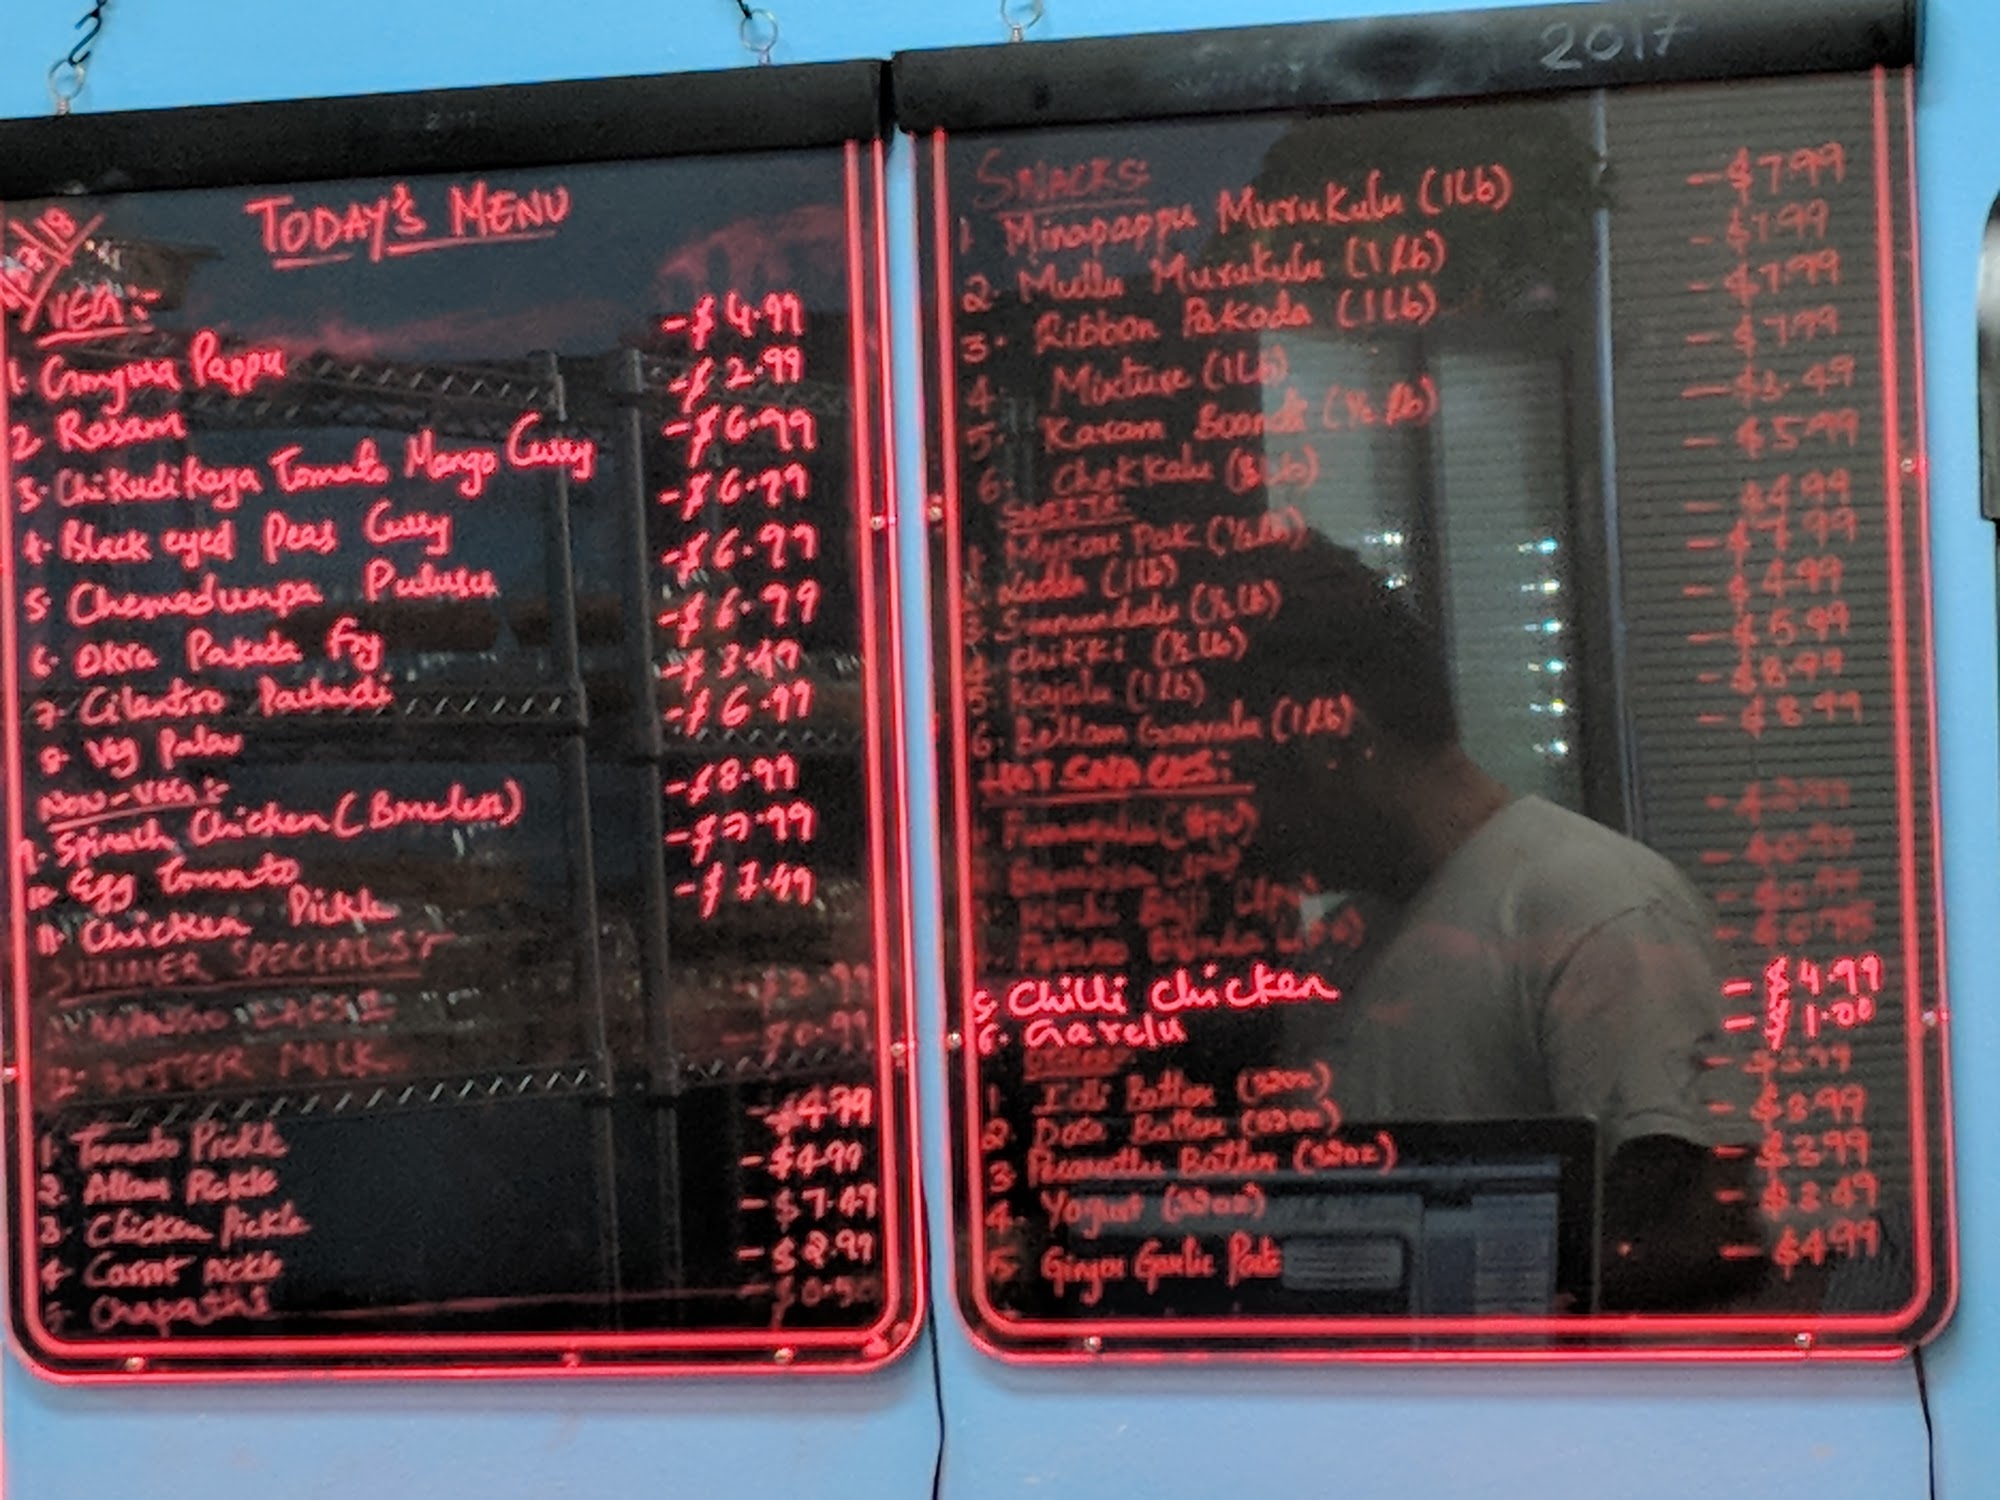 2017
TODAY'S MENU
VEG:-
1. Gongura Pappu -$4.99
2. Rasam -$2.99
3. Chikudikaya Tomato Mango Curry -$6.99
4. Black eyed Peas Curry -$6.99
5. Chemadumpa Pulusu -$6.99
6. Okra Pakoda Fry -$6.99
7. Cilantro Pachadi -$3.49
8. Veg Pulav -$6.99
NON-VEG:-
9. Spinach Chicken (Boneless) -$8.99
10. Egg Tomato -$7.99
11. Chicken Pickle -$7.49
SUMMER SPECIALS:-
1. MANGO LASSI
2. BUTTER MILK -$0.99
1. Tomato Pickle -$4.99
2. Allam Pickle -$4.99
3. Chicken Pickle -$7.49
4. Carrot Pickle -$2.99
5. Chapathi -$0.50
SNACKS:
1. Minapappu Murukulu (1Lb) -$7.99
2. Mullu Murukulu (1Lb) -$7.99
3. Ribbon Pakoda (1Lb) -$7.99
4. Mixture (1Lb) -$7.99
5. Karam Boondi (½ Lb) -$3.49
6. Chekkalu -$5.99
SWEETS:
1. Mysore Pak (½Lb) -$4.99
2. Laddu (1Lb) -$7.99
3. Sunnundalu (½ Lb) -$4.99
4. Chikki (½ Lb) -$5.99
5. Kajalu (1Lb) -$8.99
6. Bellam Gavvalu (1Lb) -$8.99
HOT SNACKS:
5. Chilli Chicken -$4.99
6. Garelu -$1.00
1. Idli Batter (32oz)
2. Dosa Batter (32oz) -$3.99
3. Pesarattu Batter (32oz) -$3.99
4. Yogurt (32oz) -$3.49
5. Ginger Garlic Paste -$4.99